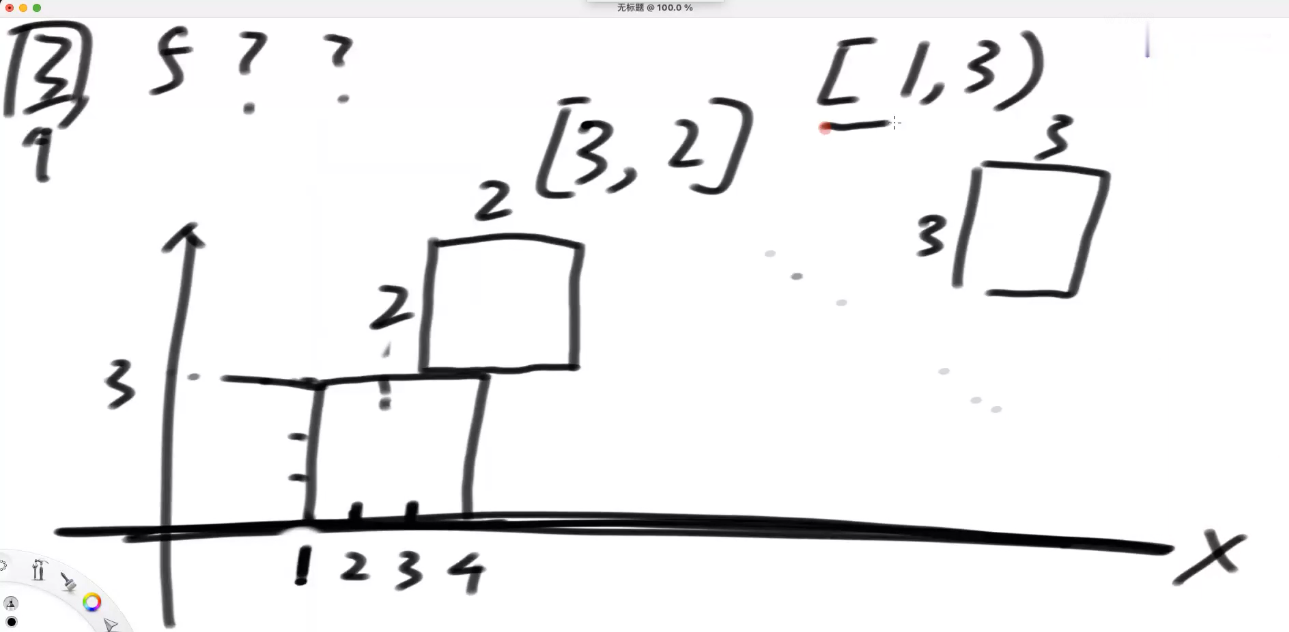 无标题 @ 100.0 %
3, 5 ? ?
9
[1,3)
[3,2]
3
3
2
2
3
1 2 3 4
X